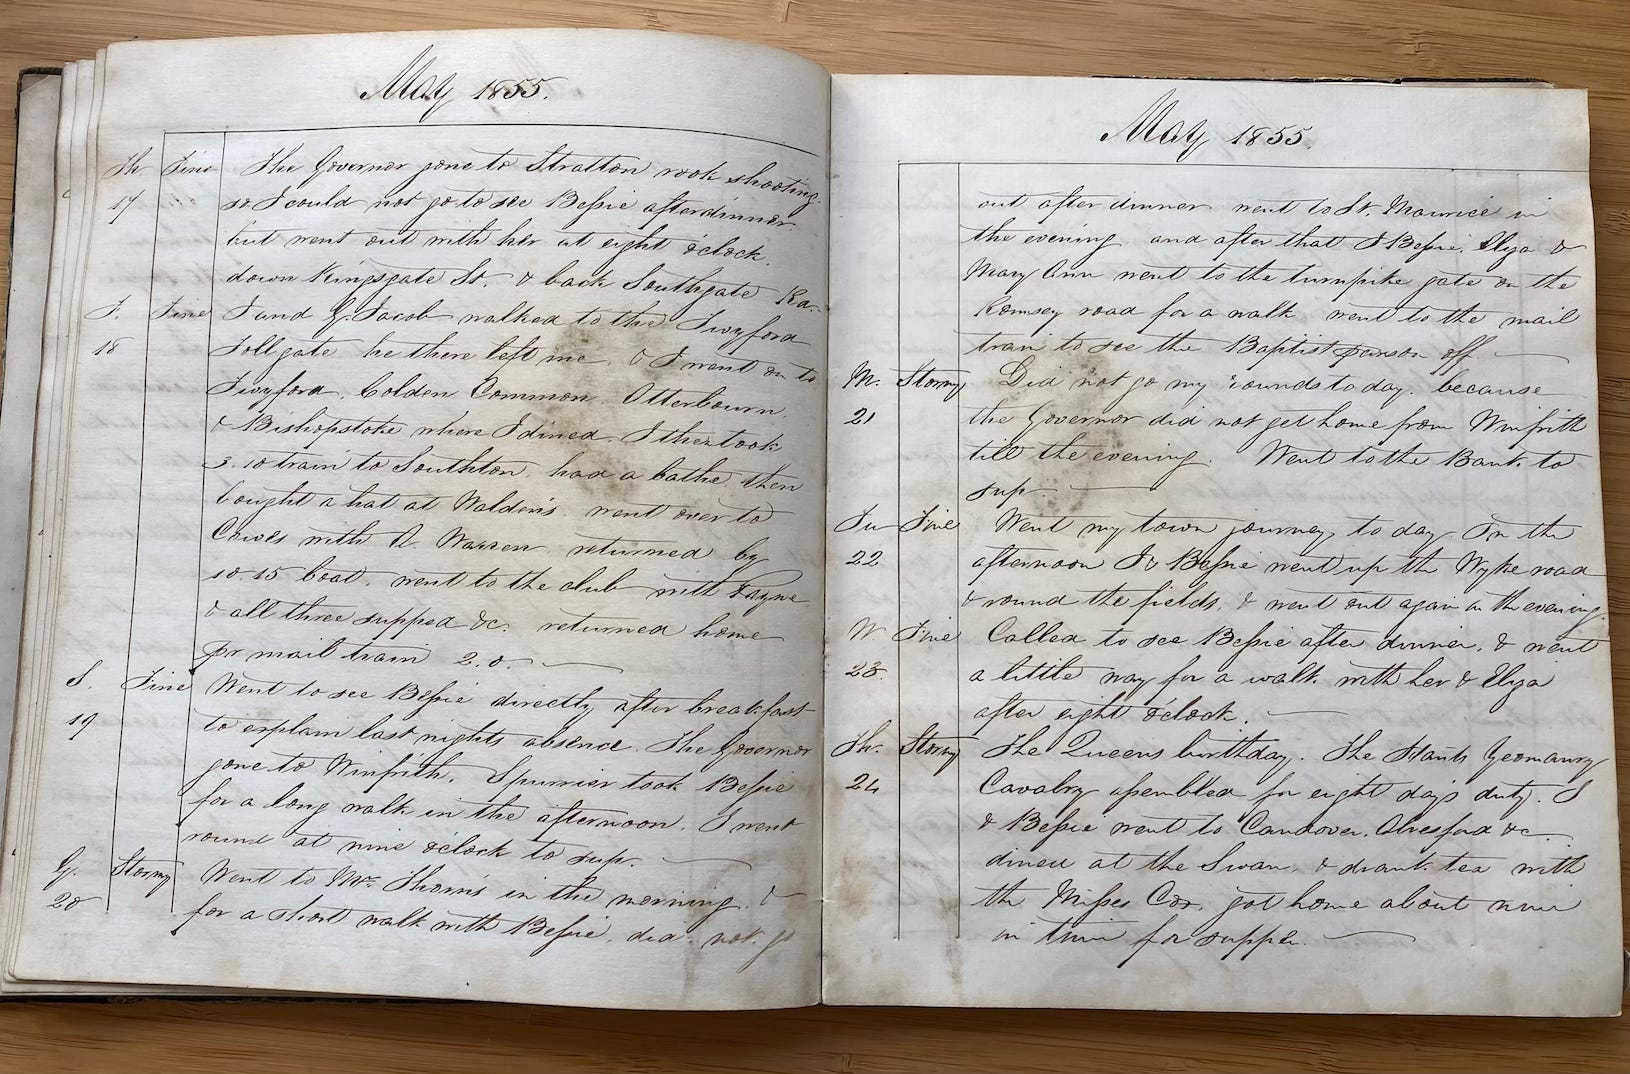 May 1855.
Th. Fine The Governor gone to Stratton rook shooting.
17 so I could not go to see Bessie after dinner.
but went out with her at eight o'clock.
down Kingsgate St. & back Southgate Ra-
F. Fine I and G. Jacob walked to the Twyford
18 Tollgate he there left me, & I went on to
Twyford, Colden Common, Otterbourn,
& Bishopstoke where I dined. I then took
3.10 train to Southton, had a bathe, then
bought a hat at Walden's, went over to
Cowes with A. Warren, returned by
10.15 boat, went to the club with Payne,
& all three supped &c. returned home
pr mail train 2.0.
S. Fine Went to see Bessie directly after breakfast
19 to explain last nights absence. The Governor
gone to Winfrith. Spurrier took Bessie
for a long walk in the afternoon, I went
round at nine o'clock to sup.
G. Stormy Went to Mr. Thorn's in the morning, &
20 for a short walk with Bessie, did not go
May 1855.
out after dinner, went to St. Maurice in
the evening and after that I Bessie, Elyza &
Mary Ann went to the turnpike gate on the
Romsey road for a walk went to the mail
train to see the Baptist parson off
M. Stormy Did not go my rounds to day, because
21 the Governor did not get home from Winfrith
till the evening. Went to the Bank to
sup.
Tu Fine Went my town journey to day. In the
22 afternoon I & Bessie went up the Wyke road
& round the fields, & went out again in the evening.
W Fine Called to see Bessie after dinner, & went
23. a little way for a walk with her & Elyza
after eight o'clock.
Th. Stormy The Queens birthday. The Hants Yeomanry
24 Cavalry assembled for eight days duty. I
& Bessie went to Candover, Alresford &c.
dined at the Swan, & drank tea with
the Misses Cox, got home about nine
in time for supper.